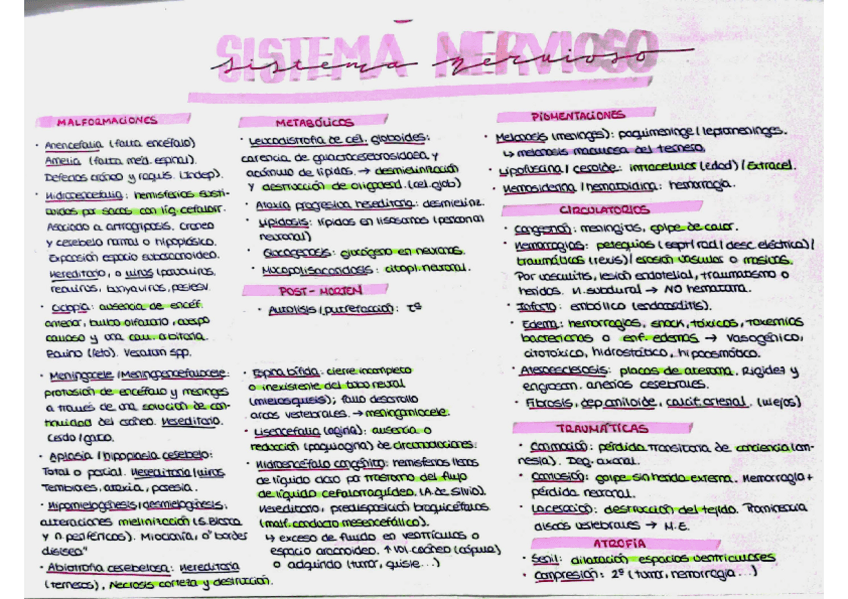 SISTEMA NERVIOSO
sistema nervioso
MALFORMACIONES
· Anencefalia (falta encéfalo)
Amelia (falta méd. espinal).
Defectos cráneo y raquis. (Indep).
· Hidranencefalia: hemisferios susti-
tuidos por sacos con líq. cefalorr.
Asociado a artrogriposis. Craneo
y cerebelo normal o hipoplásico.
Expansión espacio subaracnoideo.
Hereditario, o virus (parvovirus,
reovirus, bunyavirus, pestesv.
· Ciclopia: ausencia de encéf.
anterior, bulbo olfatorio, cuerpo
calloso y una cav. orbitaria.
Equino (feto). Veratrum spp.
· Meningocele / Meningoencefalocele:
protrusión de encéfalo y meninges
a través de una solución de con-
tinuidad del cráneo. Hereditario.
Cerdo / gato.
· Aplasia / hipoplasia cerebelo:
Total o parcial. Hereditaria / virus
Temblores, ataxia, paresia.
· Hipomielogénesis / desmielogénesis:
alteraciones mielinización (S. Blanca
y n. periféricos). Mioclonía, o "border
disease"
· Abiotrofia cerebelosa: Hereditaria
(terneros), Necrosis corteza y destrucción.
METABÓLICOS
· Leucodistrofia de cél. globoides:
carencia de galactocerebrosidasa, y
acúmulo de lípidos. → desmielinización
y destrucción de oligodend. (cel. glob)
· Ataxia progresiva hereditaria: desmieliniz.
· Lipidosis: lípidos en lisosomas (personal
neuronal)
· Glucogenosis: glucógeno en neuronas.
· Mucopolisacaridosis: citopl. neuronal.
POST-MORTEM
· Autolisis / putrefacción: Tª
· Espina bífida: cierre incompleto
o inexistente del tubo neural
(mielosquisis); fallo desarrollo
arcos vertebrales. → meningomiocele.
· Lisencefalia (agiria): ausencia o
reducción (paquiagiria) de circunvoluciones.
· Hidroencéfalo congénito: hemisferios llenos
de líquido claro por trastorno del flujo
de líquido cefalorraquídeo. (A. de Silvio).
Hereditario, predisposición braquicéfalos
(malf. conducto mesencefálico).
↳ exceso de fluido en ventrículos o
espacio aracnoideo. ↑ vol. cráneo (cúpula)
o adquirido (tumor, quiste...)
PIGMENTACIONES
· Melanosis (meninges): paquimeninge / leptomeninges.
↳ melanosis maculosa del ternero.
· Lipofuscina / ceroide: intracelular (edad) / Extracel.
· Hemosiderina / hematoidina: hemorragia.
CIRCULATORIOS
· Congestión: meningitis, golpe de calor.
· Hemorragias: petequias (sept / rad / desc. eléctrica) /
traumáticas (rexis) / erosión vascular o masivas.
Por vasculitis, lesión endotelial, traumatismo o
heridas. H. subdural → NO hematoma.
· Infarto: embólico (endocarditis).
· Edema: hemorragias, shock, tóxicos, toxemias
bacterianas o enf. edemas → Vasogénico,
citotóxico, hidrostático, hipoosmótico.
· Aterosclerosis: placas de ateroma. Rigidez y
engrosam. arterias cerebrales.
· Fibrosis, dep. amiloide, calcif. arterial. (viejos)
TRAUMÁTICAS
· Conmoción: pérdida transitoria de conciencia (am-
nesia). Deg. axonal.
· Contusión: golpe sin herida externa. Hemorragia +
pérdida neuronal.
· Laceración: destrucción del tejido.
discos vertebrales → M.E.
ATROFIA
· Senil: dilatación espacios ventriculares
· Compresión: 2º (tumor, hemorragia...)